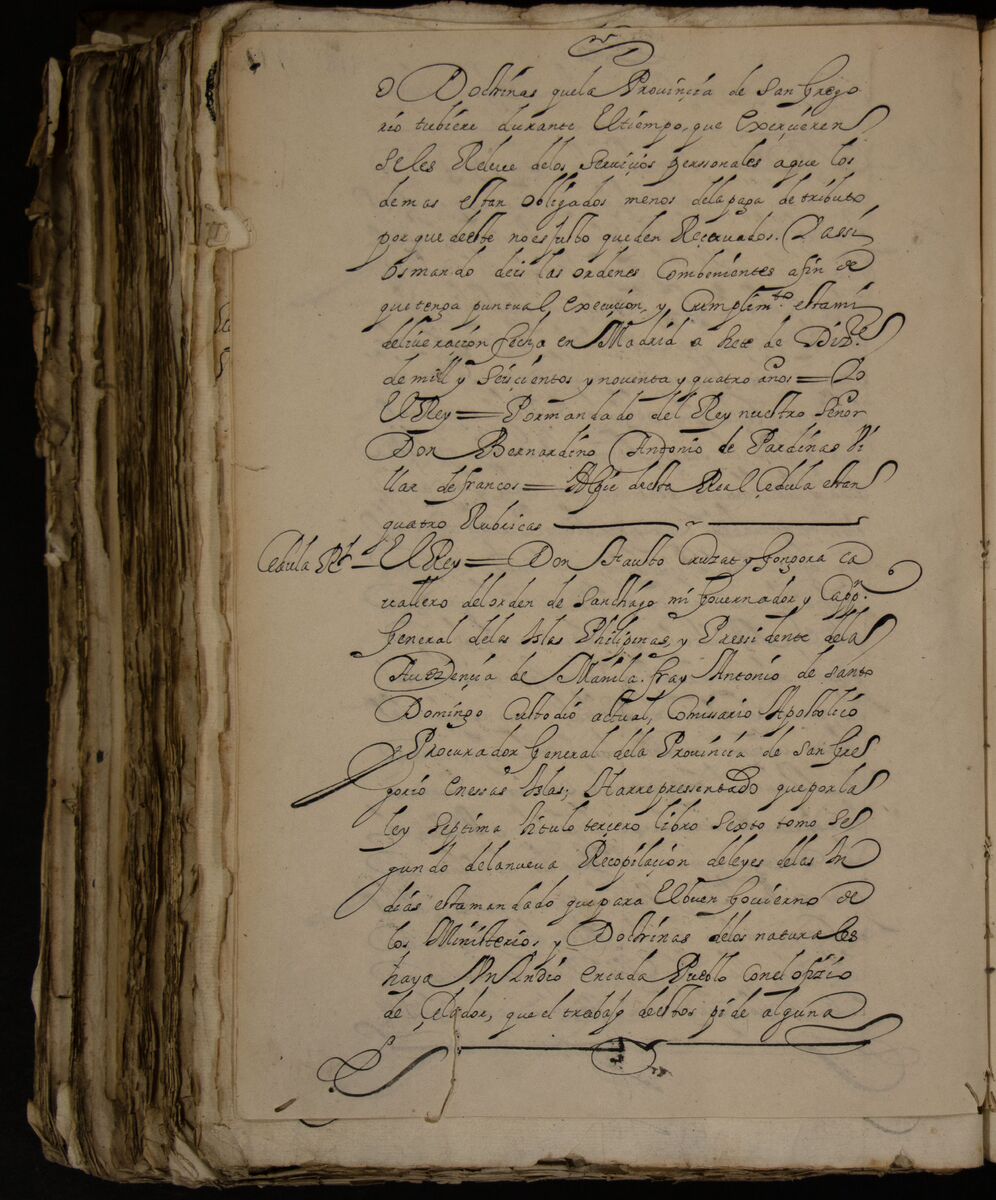 o Doctrinas quela Provinçia de san Grego
rio tubiere durante El tiempo, que Exerçieren
seles Releve delos serviçios personales aque los
demas estan obligados menos dela paga de tributo
por que deeste no es justo queden Reservados. Y assi
os mando deis las ordenes Combenientes afin de
que tenga puntual execuçion, y Cumplim.to esta mi
deliveraçion fecha en Madrid a siete de Diz.e
de mill y seisçientos y noventa y quatro años = Yo
El Rey = Por mandado del Rey nuestro señor
Don Bernardino Antonio de Pardinas Vi
llar de francos = Al pie desta Real Cedula estan
quatro Rubricas
Cedula Rl – El Rey = Don fausto Cruzat y Gongora ca
vallero del orden de Sanctiago mi Governador y Capp.n
General delas Islas Philipinas, y Pressidente dela
Audiençia de Manila. fray Antonio de santo
Domingo Custodio actual, Comisario Apostolico
y Procurador General dela Provinçia de san Gre
gorio en essas Islas; Ha rrepressentado que por la
ley septima titulo terçero libro sexto tomo se
gundo dela nueva Recopilaçion de leyes delas In
dias esta mandado que para El buen Govierno de
los Ministerios, y Doctrinas delos naturales
haya Un Indio en cada Pueblo con el ofizio
de Çelador, que el trabajo de estos pide alguna